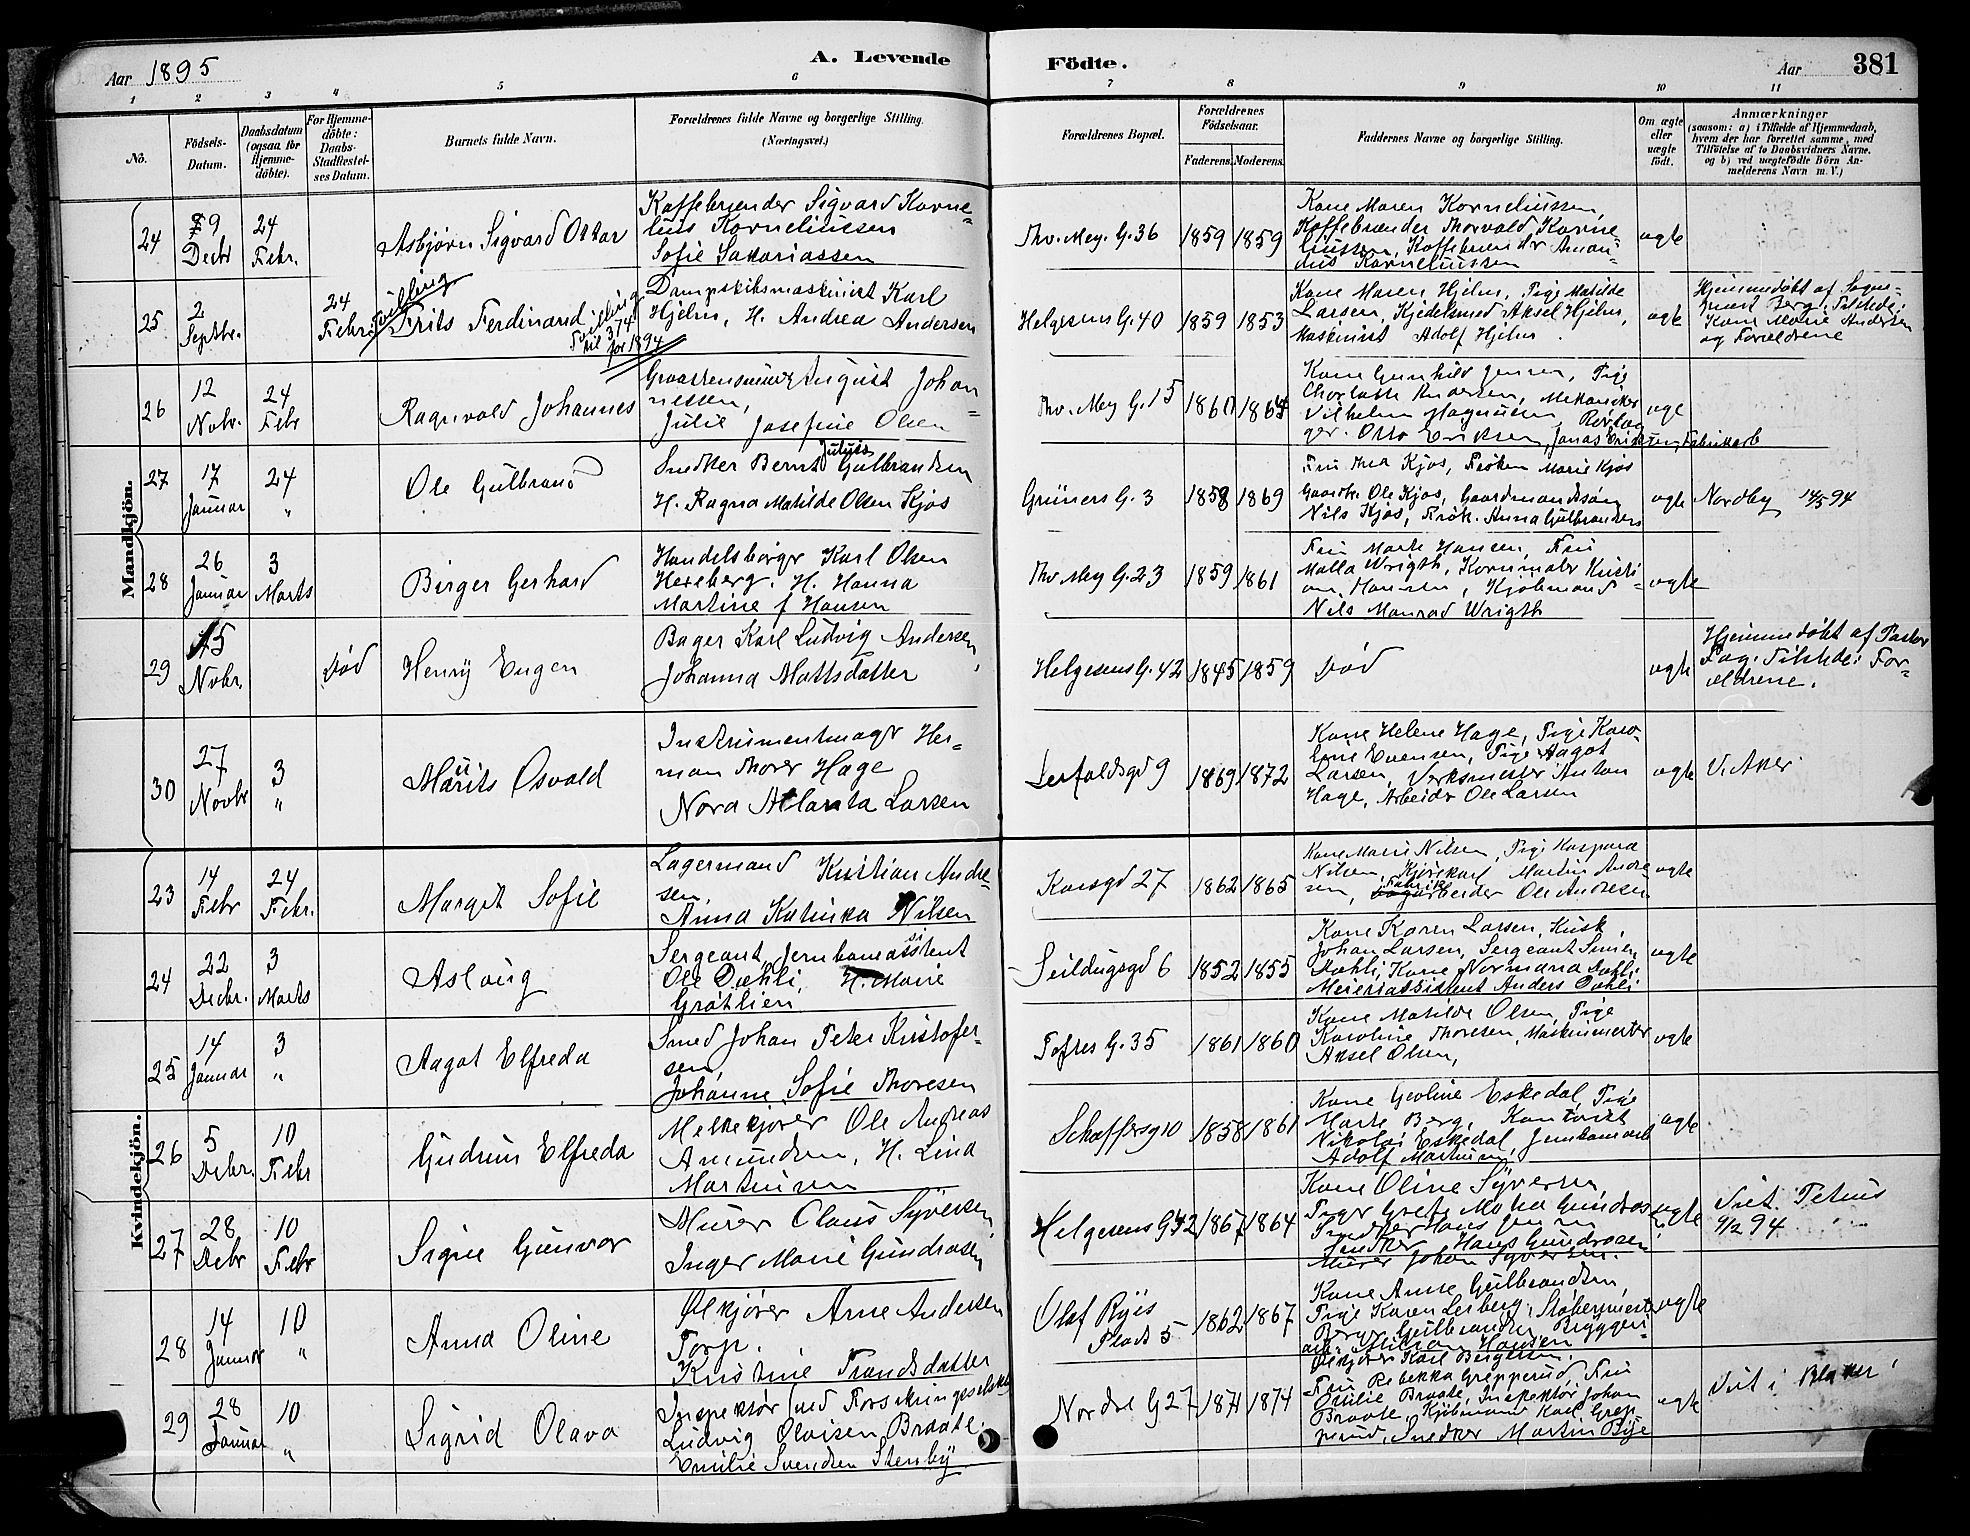 Aar 1895
A. Levende
Födte.
Aar
381
1 2 3 4 5 6 7 8 9 10 11
Nö.
Födsels-
Datum.
Daabsdatum
(ogsaa for
Hjemme-
döbte).
For Hjemme-
döbte:
Daabs-
Stadfæstel-
ses Datum.
Barnets fulde Navn.
Forældrenes fulde Navne og borgerlige Stilling.
(Næringsvei.)
Forældrenes Bopæl.
Forældrenes
Födselsaar.
Faderens. Moderens.
Faddernes Navne og borgerlige Stilling.
Om ægte
eller
uægte
födt.
Anmærkninger
(saasom: a) i Tilfælde af Hjemmedaab,
hvem der har forrettet samme, med
Tilföielse af to Daabsvidners Navne.
og b) ved uægtefödte Börn An-
melderens Navn m. V.)
Mandkjön.
24
9
Decbr
24
Febr.
Asbjörn Sigvard Oskar
Kaffebrænder Sigvard Korne-
lius Korneliussen
Sofie Sakariassen
Thv. Mey. G. 36
1859 1859
Kone Maren Korneliussen,
Kaffebrænder Thorvald Korne-
liussen, Kaffebrænder Aman-
dus Korneliussen
ægte
25
2
Septbr.
24
Febr.
Tvilling
Frits Ferdinand
Tvilling
til 374
for 1894
Dampskibsmaskinist Karl
Hjelm, H. Andrea Andersen
Helgesens G. 40
1859 1853
Kone Maren Hjelm, Pige Matilde
Larsen, Kjedelsmed Aksel Hjelm,
Maskinist Adolf Hjelm.
ægte
Hjemmedöbt af Sogne-
præst Berg. Tilstede:
Kone Marie Andersen
og Forældrene
26
12
Nobr.
24
Febr
Ragnvald Johannes
August Johan-
nessen,
Julie Josefine Olsen
Thv. Mey G. 15
1860 1864
Kone Gunhild Jensen, Pige
Charlotte Andersen, Mekaniker
Vilhelm Magnussen,
Otto Eriksen, Jonas Eriksen, Fabrikarb
27
17
Januar
24
"
Ole Gulbrand
Julius
Snedker Bernt Gulbrandsen
H. Ragna Matilde Olsen Kjos
Grüners G. 3
1858 1869
Fru Thea Kjos, Fröken Marie Kjos
Gaardbr. Ole Kjos, Gaardmandssön
Nils Kjos, Frök. Anna Gulbrandsen
ægte
Nordby
94
28
26
Januar
3
Marts
Birger Gerhard
Handelsborger Karl Olsen
Hexeberg. H. Hanna
Martine f Hansen
Thv. Mey G. 23
1859 1861
Fru Marte Hansen, Fru
Malla Wrigth, Kornmaler Kristi-
an Hansen, Kjöbmand
Nils Monrad Wrigth
ægte
29
15
Nobr.
Död
Henry Eugen
Bager Karl Ludvig Andersen,
Johanna Mattsdatter
Helgesens G. 42
1845 1859
Död
ægte
Hjemmedöbt af Pastor
Fag. Tilstede: For-
ældrene.
30
27
Novbr
3
"
Maurits Osvald
Instrumentmager Her-
man Thorer Hage
Nora Atlanta Larsen
9
1869 1872
Kone Helene Hage, Pige Karo-
line Evensen, Pige Aagot
Larsen, Verksmester Anton
Hage, Arbeider Ole Larsen
ægte
V. Aker
Kvindekjön.
23
14
Febr
24
Febr.
Margit Sofie
Lagermand Kristian Andre-
sen
Anna Katinka Nilsen
Korsgd 27
1862 1865
Kone Marie Nilsen, Pige Kaspara
Nilsen, Kjörekarl Martin Andre
sen, Fabrikarbeider Ole Andresen
ægte
24
22
Decbr.
3
Marts
Aslaug
Sergeant, Jernbaneassistent
Ole Dæhli, H. Marie
Gröthlien
Seildugsgd 6
1852 1855
Kone Karen Larsen, Kusk
Johan Larsen, Sergeant Simen
Dæhli, Kone Normana Dæhli
Meieriassistent Anders Dæhli
ægte
25
14
Januar
3
"
Aagot Elfreda
Smed Johan Peter Kristofer-
sen,
Johanne Sofie Thoresen
Toftes G. 35
1861 1860
Kone Matilde Olsen, Pige
Karoline Thoresen, Maskinmester
Aksel Olsen,
ægte
26
5
Decbr.
10
Febr
Gudrun Elfreda
Melkekjörer Ole Andreas
Amundsen, H. Lina
Martinsen
Schæffersg 10
1858 1861
Kone Geoline Eskedal, Pige
Marte Berg, Kontorist
Nikolai Eskedal, Jernbanearb
Adolf Martinsen
ægte
27
28
Decbr
10
Febr
Signe Gunvor
Murer Claus Syversen
Inger Marie Gundrosen
Helgesens G 42
1867 1864
Kone Oline Syversen
Snedker Hans Jensen
Snedker Hans Gundrosen
Murer Johan Syversen.
ægte
Viet. Petrus
9/2 94
28
14
Januar
10
"
Anna Oline
Ölkjörer Arne Andersen
Torp.
Kristine Trondsdatter
Olaf Ryes
Plads 5
1862 1867
Kone Anne Gulbrandsen,
Pige Karen Lesberg, Stöbermester
Berger Gulbrandsen Bryggeri-
arb. Hansen
Ölkjörer Karl Bergersen.
ægte
29
28
Januar
10
"
Sigrid Olava
Inspektör ved Forsikringsselskab
Ludvig Olaisen Braate.
Emilie Svendsen Stenby
Nordre G 27
1871 1874
Fru Rebekka Grepperud, Fru
Emilie Braate, Inspektör Johan
Braate, Kjöbmand Karl Grep
perud, Snedker Martin Bye
ægte
Viet i Blaker